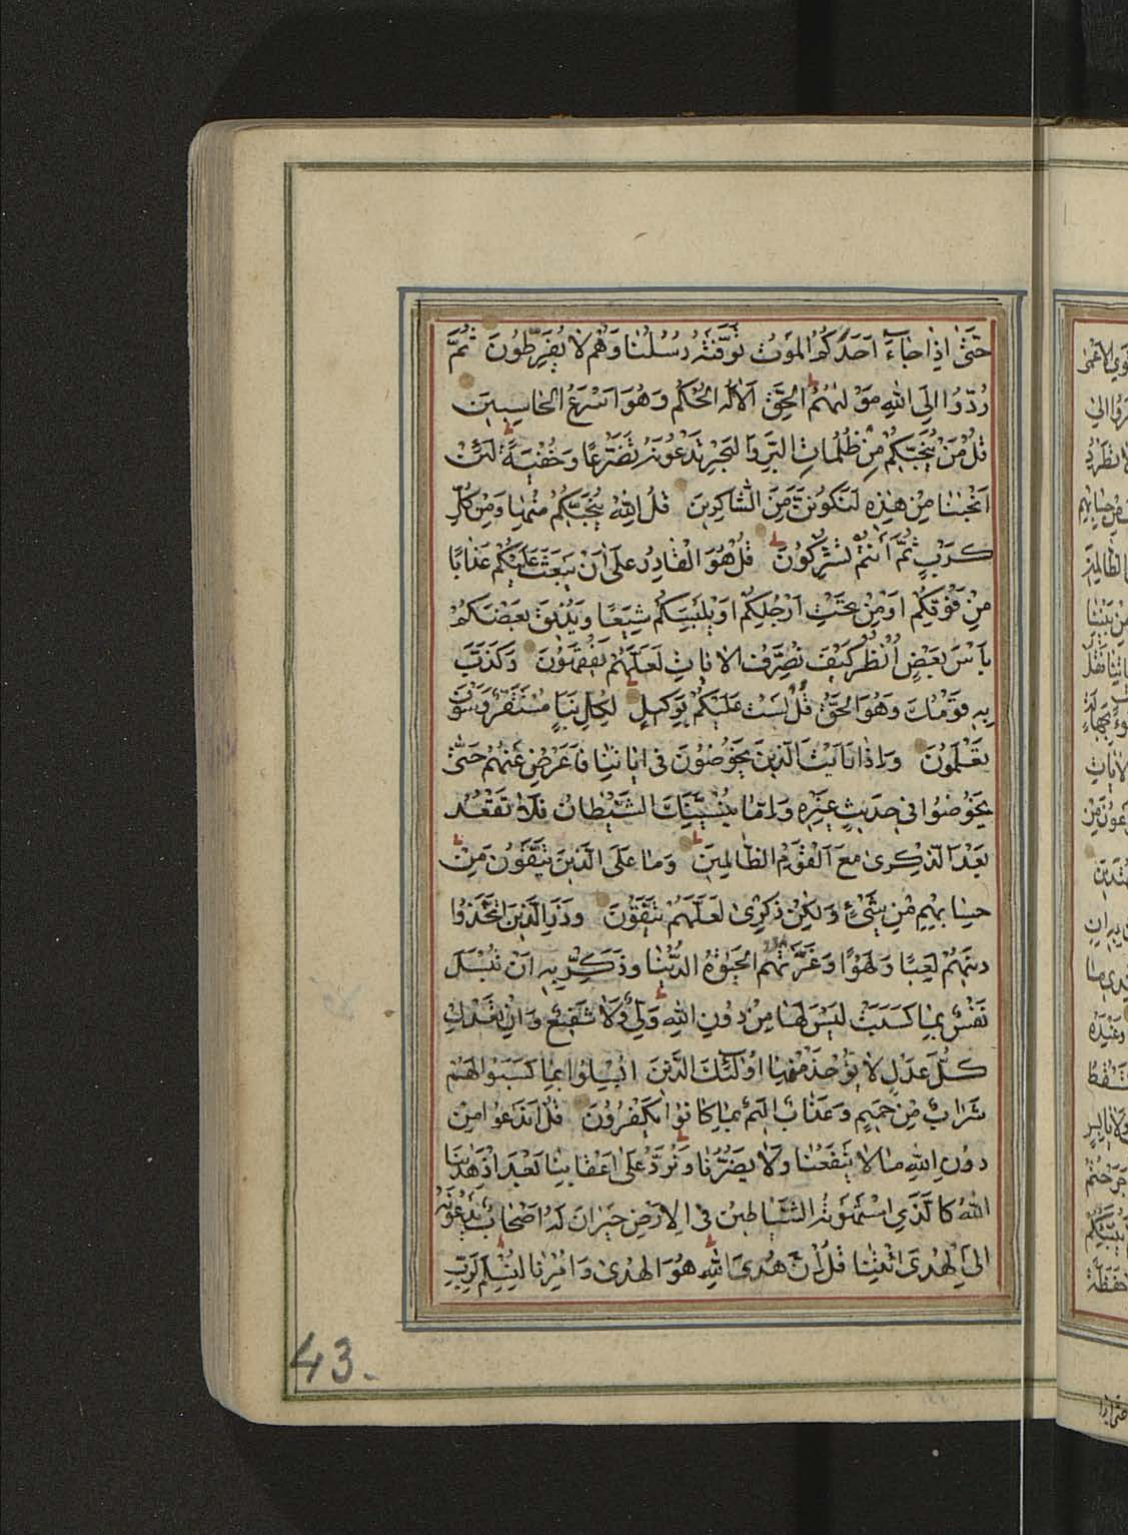 حَتّٰى اِذٰا جٰاءَ اَحَدَكُمُ الْمَوْتُ تَوَفَّتْهُ رُسُلُنٰا وَهُمْ لٰا يُفَرِّطُونَ ثُمَّ
رُدُّوا اِلَى اللهِ مَوْلٰيهُمُ الْحَقِّ اَلٰا لَهُ الْحُكْمُ وَهُوَ اَسْرَعُ الْحٰاسِبِينَ
قُلْ مَنْ يُنَجِّيكُمْ مِنْ ظُلُمٰاتِ الْبَرِّ وَالْبَحْرِ تَدْعُونَهُ تَضَرُّعًا وَخُفْيَةً لَئِنْ
اَنْجٰينٰا مِنْ هٰذِهِ لَنَكُونَنَّ مِنَ الشّٰاكِرِينَ قُلِ اللهُ يُنَجِّيكُمْ مِنْهٰا وَمِنْ كُلِّ
كَرْبٍ ثُمَّ اَنْتُمْ تُشْرِكُونَ قُلْ هُوَ الْقٰادِرُ عَلٰى اَنْ يَبْعَثَ عَلَيْكُمْ عَذٰابًا
مِنْ فَوْقِكُمْ اَوْ مِنْ تَحْتِ اَرْجُلِكُمْ اَوْ يَلْبِسَكُمْ شِيَعًا وَيُذِيقَ بَعْضَكُمْ
بَأْسَ بَعْضٍ اُنْظُرْ كَيْفَ نُصَرِّفُ الْاٰيٰاتِ لَعَلَّهُمْ يَفْقَهُونَ وَكَذَّبَ
بِهِ قَوْمُكَ وَهُوَ الْحَقُّ قُلْ لَسْتُ عَلَيْكُمْ بِوَكِيلٍ لِكُلِّ نَبَإٍ مُسْتَقَرٌّ وَسَوْفَ
تَعْلَمُونَ وَاِذٰا رَاَيْتَ الَّذِينَ يَخُوضُونَ فِى اٰيٰاتِنٰا فَاَعْرِضْ عَنْهُمْ حَتّٰى
يَخُوضُوا فِى حَدِيثٍ غَيْرِهِ وَاِمّٰا يُنْسِيَنَّكَ الشَّيْطٰانُ فَلٰا تَقْعُدْ
بَعْدَ الذِّكْرىٰ مَعَ الْقَوْمِ الظّٰالِمِينَ وَمٰا عَلَى الَّذِينَ يَتَّقُونَ مِنْ
حِسٰابِهِمْ مِنْ شَىْءٍ وَلٰكِنْ ذِكْرىٰ لَعَلَّهُمْ يَتَّقُونَ وَذَرِ الَّذِينَ اتَّخَذُوا
دِينَهُمْ لَعِبًا وَلَهْوًا وَغَرَّتْهُمُ الْحَيٰوةُ الدُّنْيٰا وَذَكِّرْ بِهِ اَنْ تُبْسَلَ
نَفْسٌ بِمٰا كَسَبَتْ لَيْسَ لَهٰا مِنْ دُونِ اللهِ وَلِىٌّ وَلٰا شَفِيعٌ وَاِنْ تَعْدِلْ
كُلَّ عَدْلٍ لٰا يُؤْخَذْ مِنْهٰا اُولٰئِكَ الَّذِينَ اُبْسِلُوا بِمٰا كَسَبُوا لَهُمْ
شَرٰابٌ مِنْ حَمِيمٍ وَعَذٰابٌ اَلِيمٌ بِمٰا كٰانُوا يَكْفُرُونَ قُلْ اَنَدْعُوا مِنْ
دُونِ اللهِ مٰا لٰا يَنْفَعُنٰا وَلٰا يَضُرُّنٰا وَنُرَدُّ عَلٰى اَعْقٰابِنٰا بَعْدَ اِذْ هَدٰينَا
اللهُ كَالَّذِى اسْتَهْوَتْهُ الشَّيٰاطِينُ فِى الْاَرْضِ حَيْرٰانَ لَهُ اَصْحٰابٌ يَدْعُونَهُ
اِلَى الْهُدَى ائْتِنٰا قُلْ اِنَّ هُدَى اللهِ هُوَ الْهُدىٰ وَاُمِرْنٰا لِنُسْلِمَ لِرَبِّ
43.